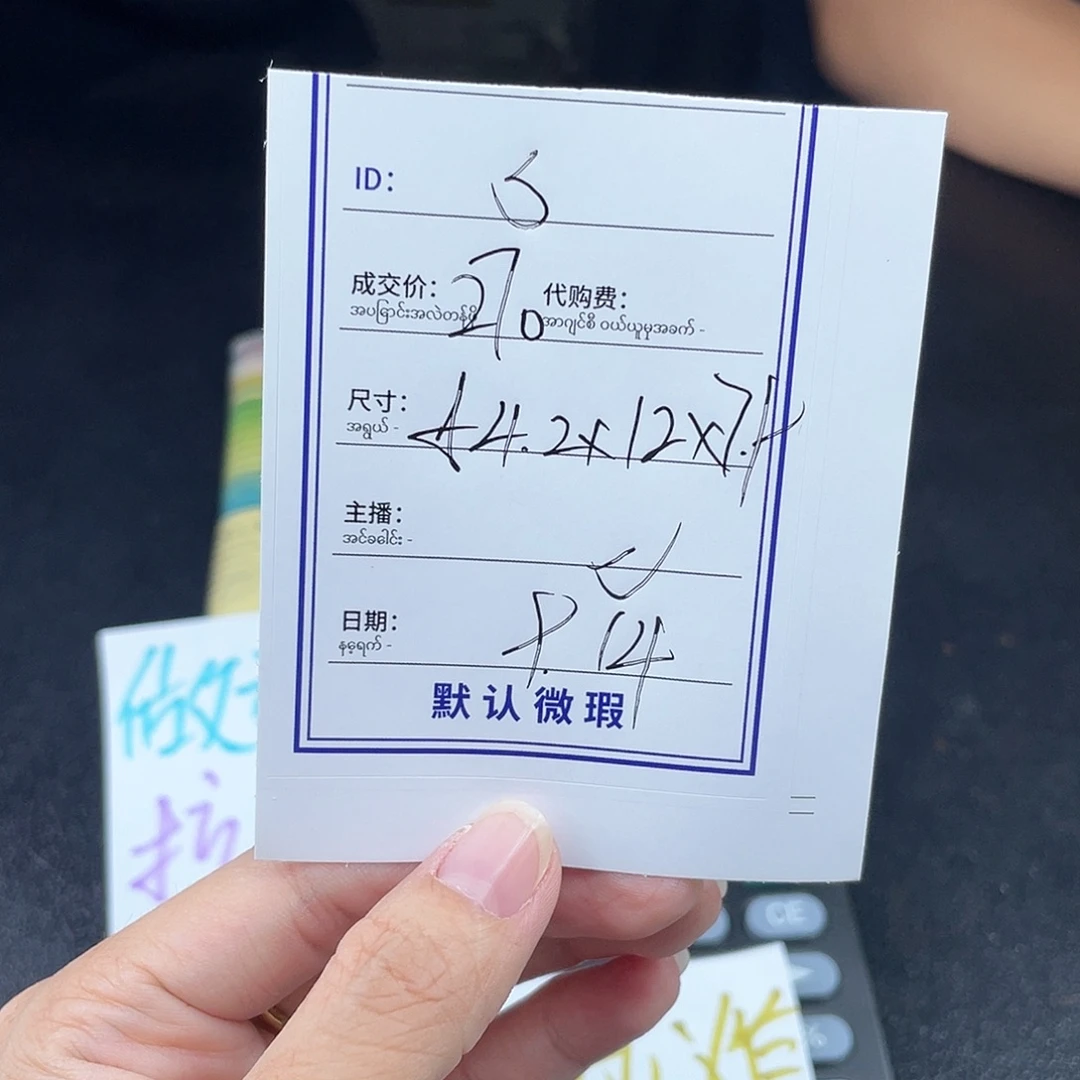 ID: 5
成交价: 270 代购费:
အပြောင်းအလဲတန်ဖိုး အာဂျင်စီ ဝယ်ယူမှုအခက် -
尺寸: 44.2x12x7.4
အရွယ် -
主播:
အင်ခေါင်း -
日期: 9.14
နေ့ရက် -
默认微瑕
做
抗
CE